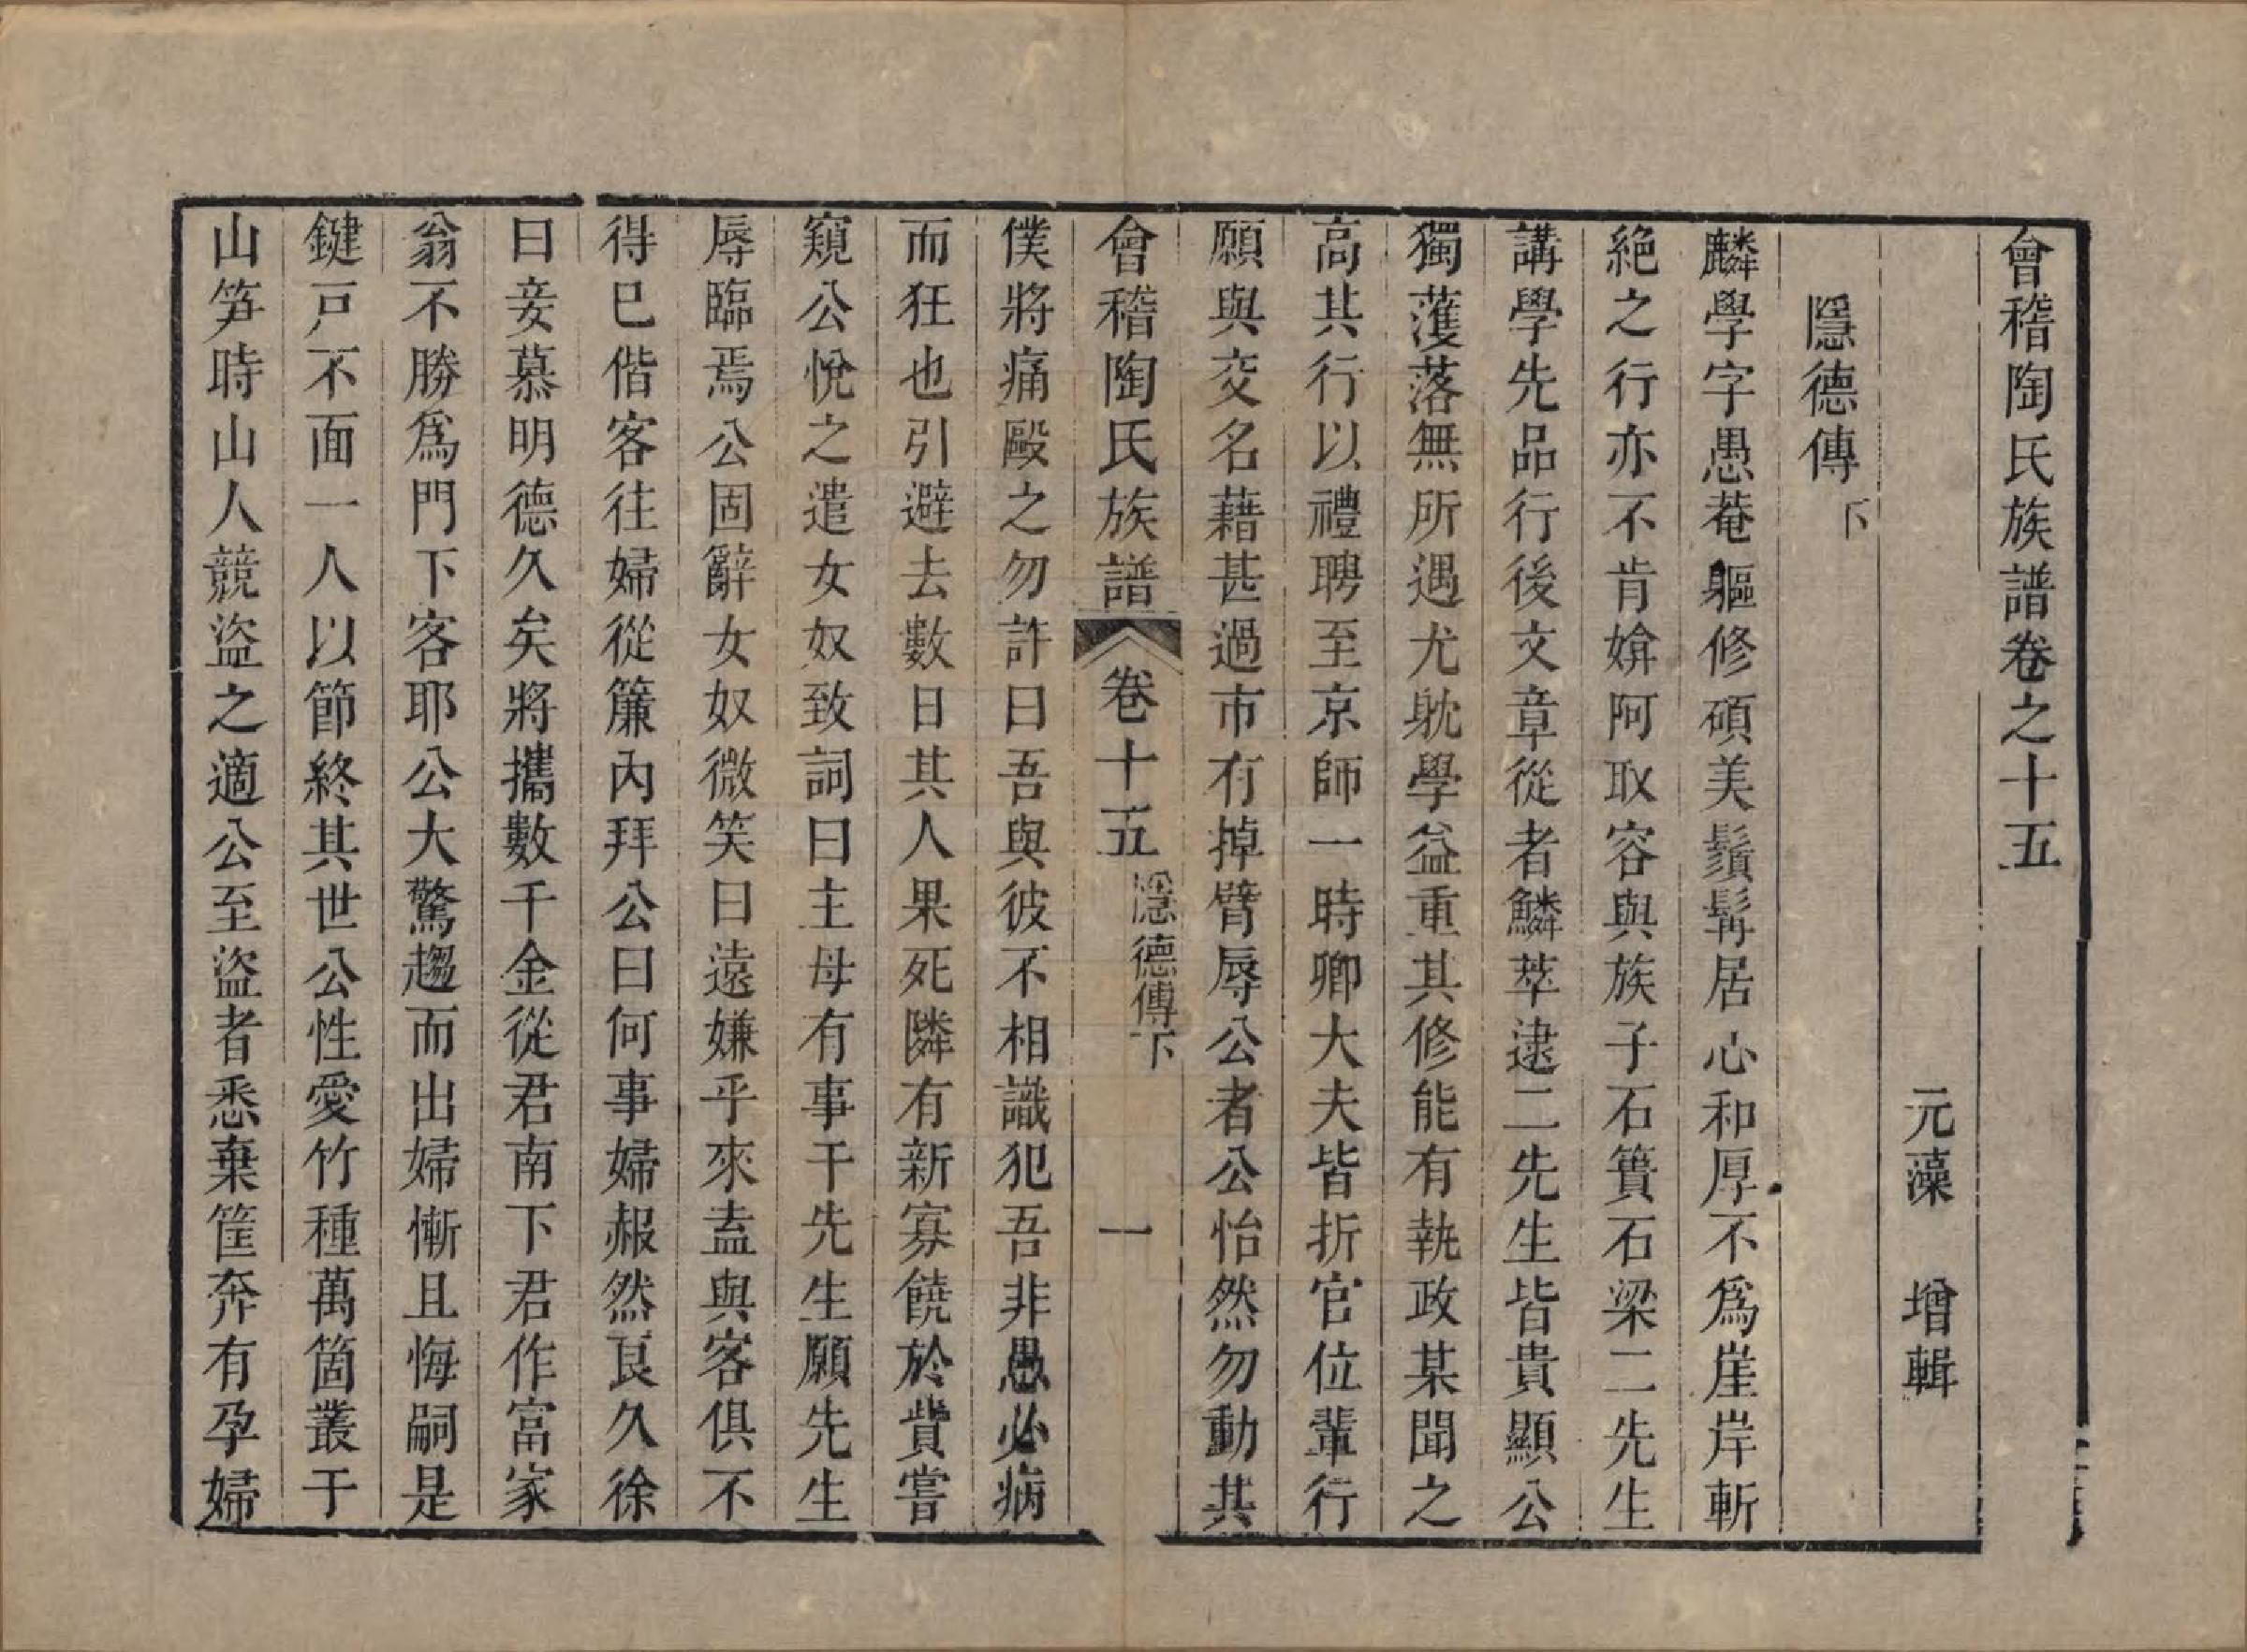 會稽陶氏族譜卷之十五
元藻　增輯
隱德傳下
麟學字愚菴軀修碩美鬚髯居心和厚不爲崖岸斬
絕之行亦不肯媕阿取容與族子石簣石梁二先生
講學先品行後文章從者鱗萃逮二先生皆貴顯公
獨濩落無所遇尤躭學益重其修能有執政某聞之
高其行以禮聘至京師一時卿大夫皆折官位輩行
願與交名藉甚過市有掉臂辱公者公怡然勿動其
會稽陶氏族譜　卷十五　隱德傳下　一
僕將痛毆之勿許曰吾與彼不相識犯吾非愚必病
而狂也引避去數日其人果死隣有新寡饒於貲嘗
窺公悅之遣女奴致詞曰主母有事干先生願先生
辱臨焉公固辭女奴微笑曰遠嫌乎來盍與客俱不
得已偕客往婦從簾內拜公曰何事婦赧然良久徐
曰妾慕明德久矣將攜數千金從君南下君作富家
翁不勝爲門下客耶公大驚趨而出婦慚且悔嗣是
鍵戸不面一人以節終其世公性愛竹種萬箇叢于
山笋時山人競盜之適公至盜者悉棄筐奔有孕婦